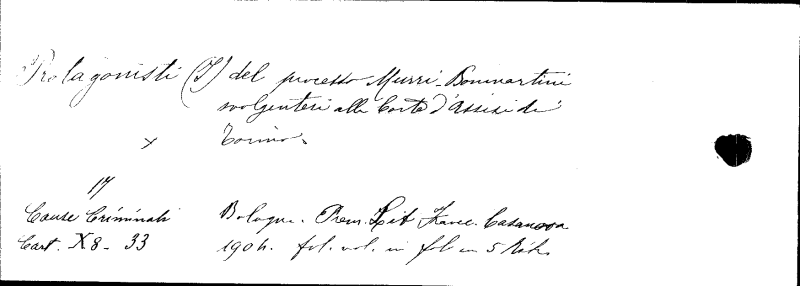 Protagonisti (I) del processo Murri-Bonmartini
svolgentesi alla Corte d'Assisi di
Torino.
17
Cause Criminali
Cart. X8-33
Bologna. Prem. Lit. Casanova
1904. fol. vol. in fol. 5